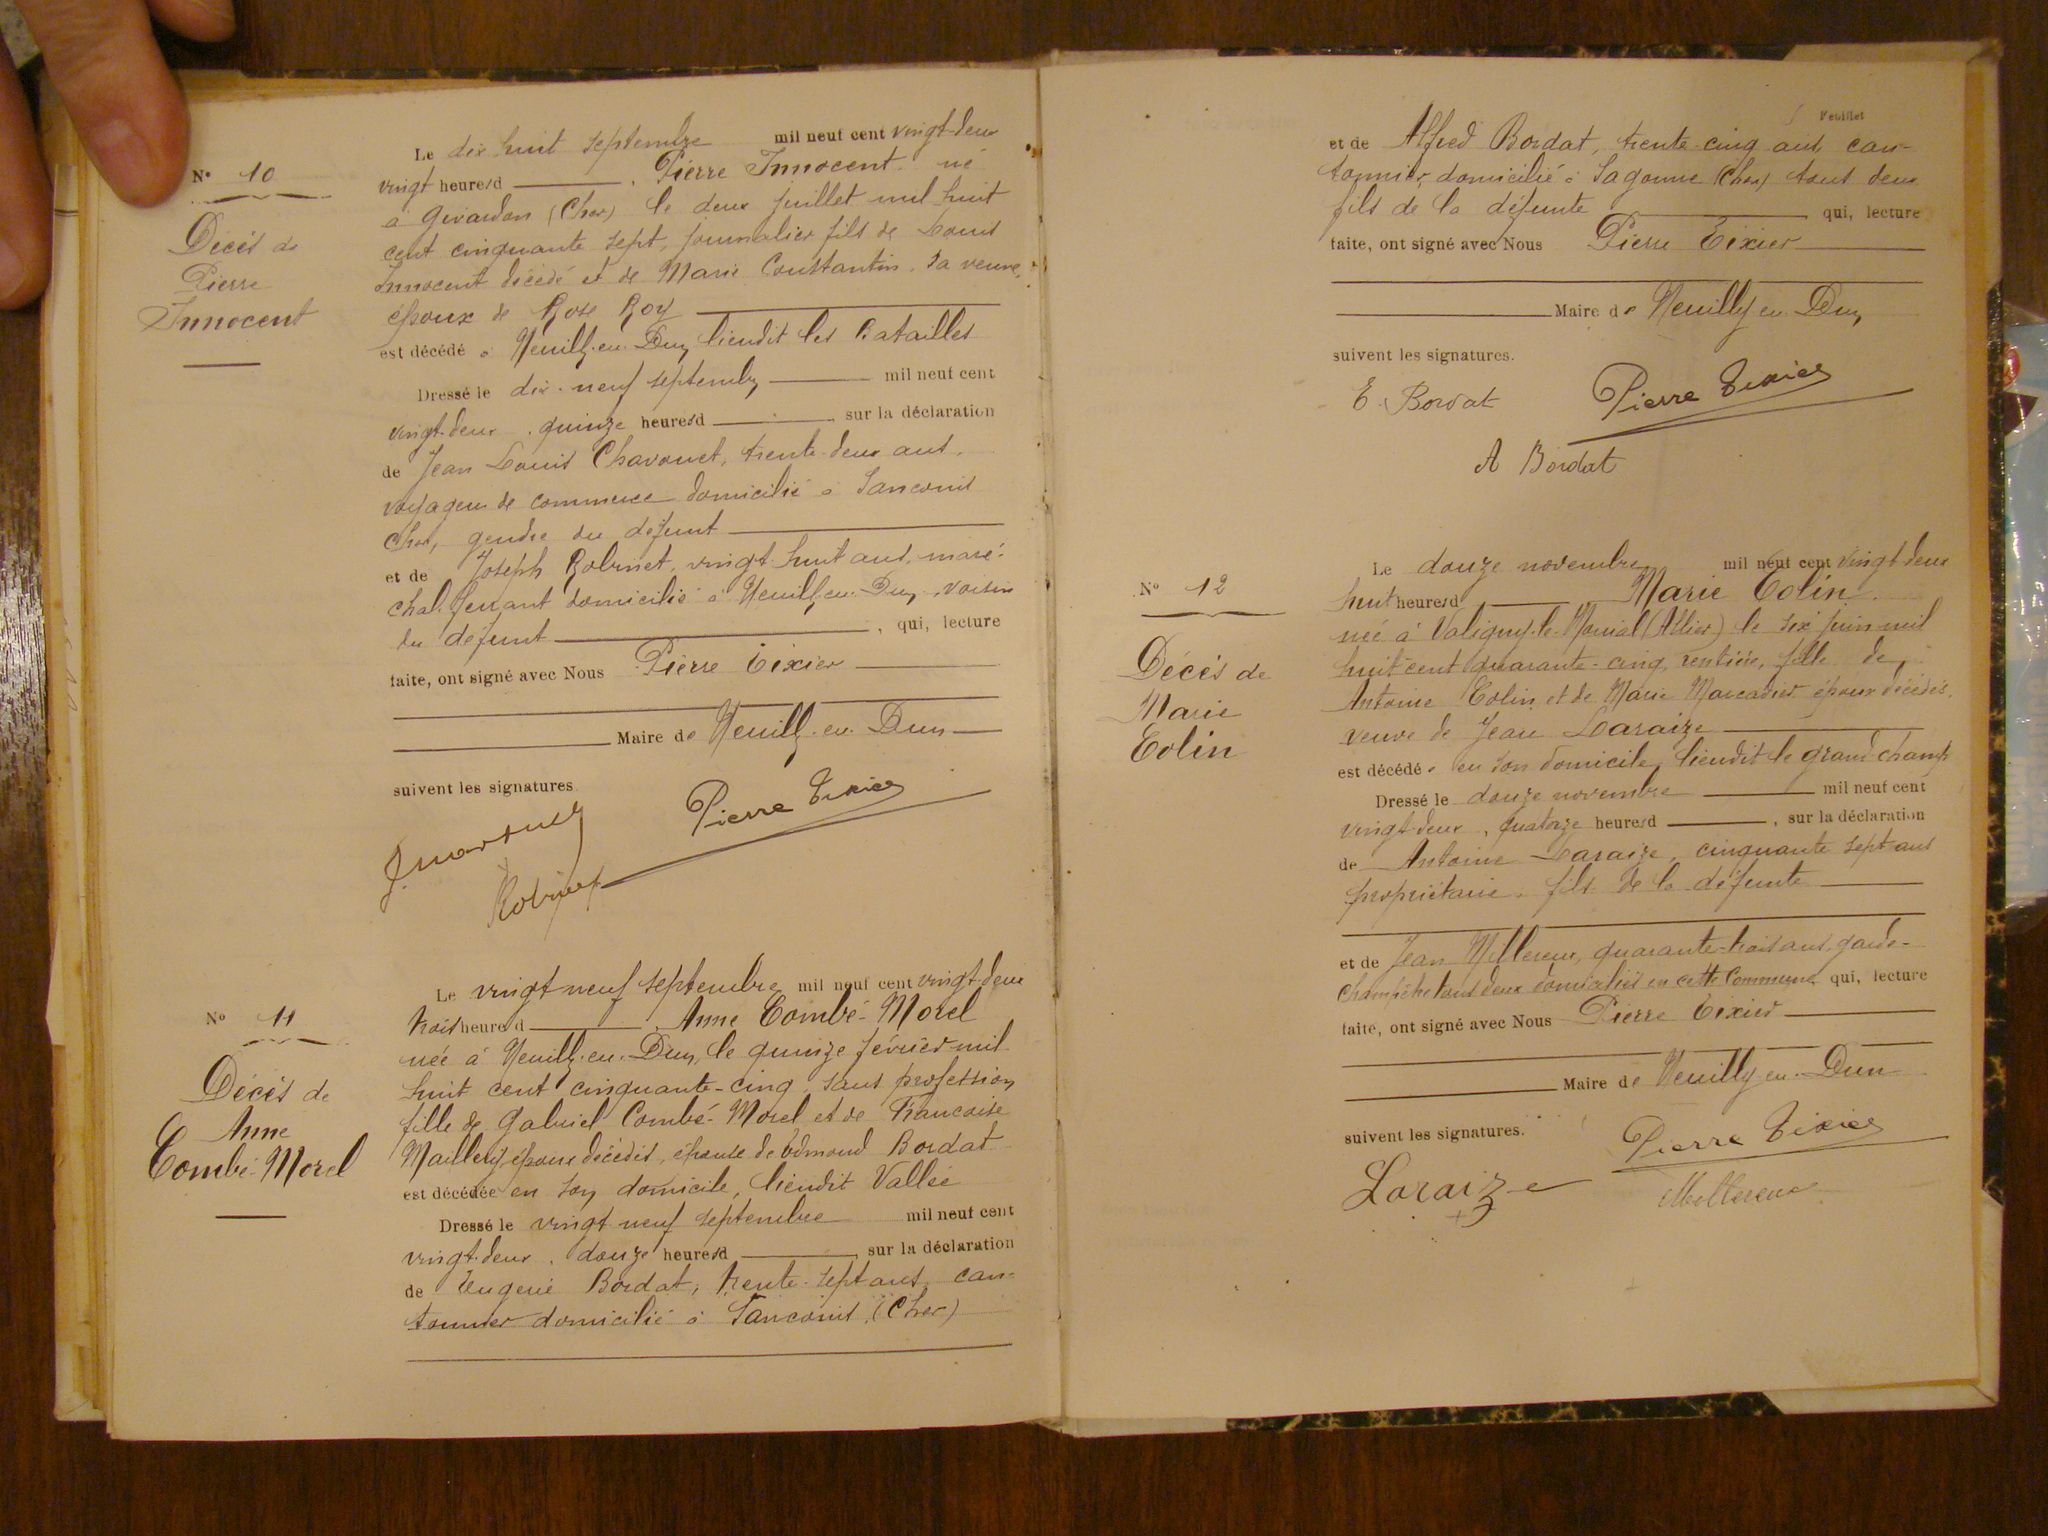 N° 10
Décès de
Pierre
Innocent
Le dix huit septembre mil neuf cent vingt-deux
vingt heures Pierre Innocent né
à Givardon (Cher) le deux juillet mil huit
cent cinquante sept, journalier fils de Louis
Innocent décédé et de Marie Constantin, sa veuve,
époux de Rose Roy
est décédé à Neuilly-en-Dun, lieudit les Batailles
Dressé le dix-neuf septembre mil neuf cent
vingt-deux, quinze heures sur la déclaration
de Jean Louis trente-deux ans,
voyageur de commerce domicilié à Sancoins
Cher, gendre du défunt
et de Joseph Robinet, vingt-huit ans, maré-
chal-ferrant domicilié à Neuilly-en-Dun, voisin
du défunt, qui, lecture
faite, ont signé avec Nous Pierre Tixier
Maire de Neuilly-en-Dun
suivent les signatures
Pierre Tixier
Robinet
N° 11
Décès de
Anne
Combé-Morel
Le vingt neuf septembre mil neuf cent vingt-deux
trois heures, Anne Combé-Morel
née à Neuilly-en-Dun, le quinze février mil
huit cent cinquante-cinq, sans profession
fille de Gabriel Combé-Morel et de Francoise
époux décédés, épouse de Edmond Bordat
est décédée en son domicile, lieudit Vallée
Dressé le vingt neuf septembre mil neuf cent
vingt-deux, douze heures, sur la déclaration
de Eugène Bordat, trente-sept ans, can-
tonnier domicilié à Sancoins, (Cher)
Feuillet
et de Alfred Bordat, trente-cinq ans, can-
tonnier, domicilié à Sagonne (Cher) tous deux
fils de la défunte qui, lecture
faite, ont signé avec Nous Pierre Tixier
Maire de Neuilly-en-Dun,
suivent les signatures.
E. Bordat
Pierre Tixier
A Bordat
N° 12
Décès de
Marie
Colin
Le douze novembre mil neuf cent vingt-deux
huit heures Marie Colin
née à Valigny-le-Monial (Allier) le six juin mil
huit cent quarante-cinq, rentière, fille de
Antoine Colin et de Marie Marcadier époux décédés,
veuve de Jean Laraize
est décédée en son domicile, lieudit le grand champ
Dressé le douze novembre mil neuf cent
vingt-deux, quatorze heures, sur la déclaration
de Antoine Laraize, cinquante sept ans
propriétaire, fils de la défunte
et de Jean Millereux, quarante-trois ans, garde-
champêtre tous deux domiciliés en cette Commune qui, lecture
faite, ont signé avec Nous Pierre Tixier
Maire de Neuilly-en-Dun
suivent les signatures.
Pierre Tixier
Laraize
Millereux